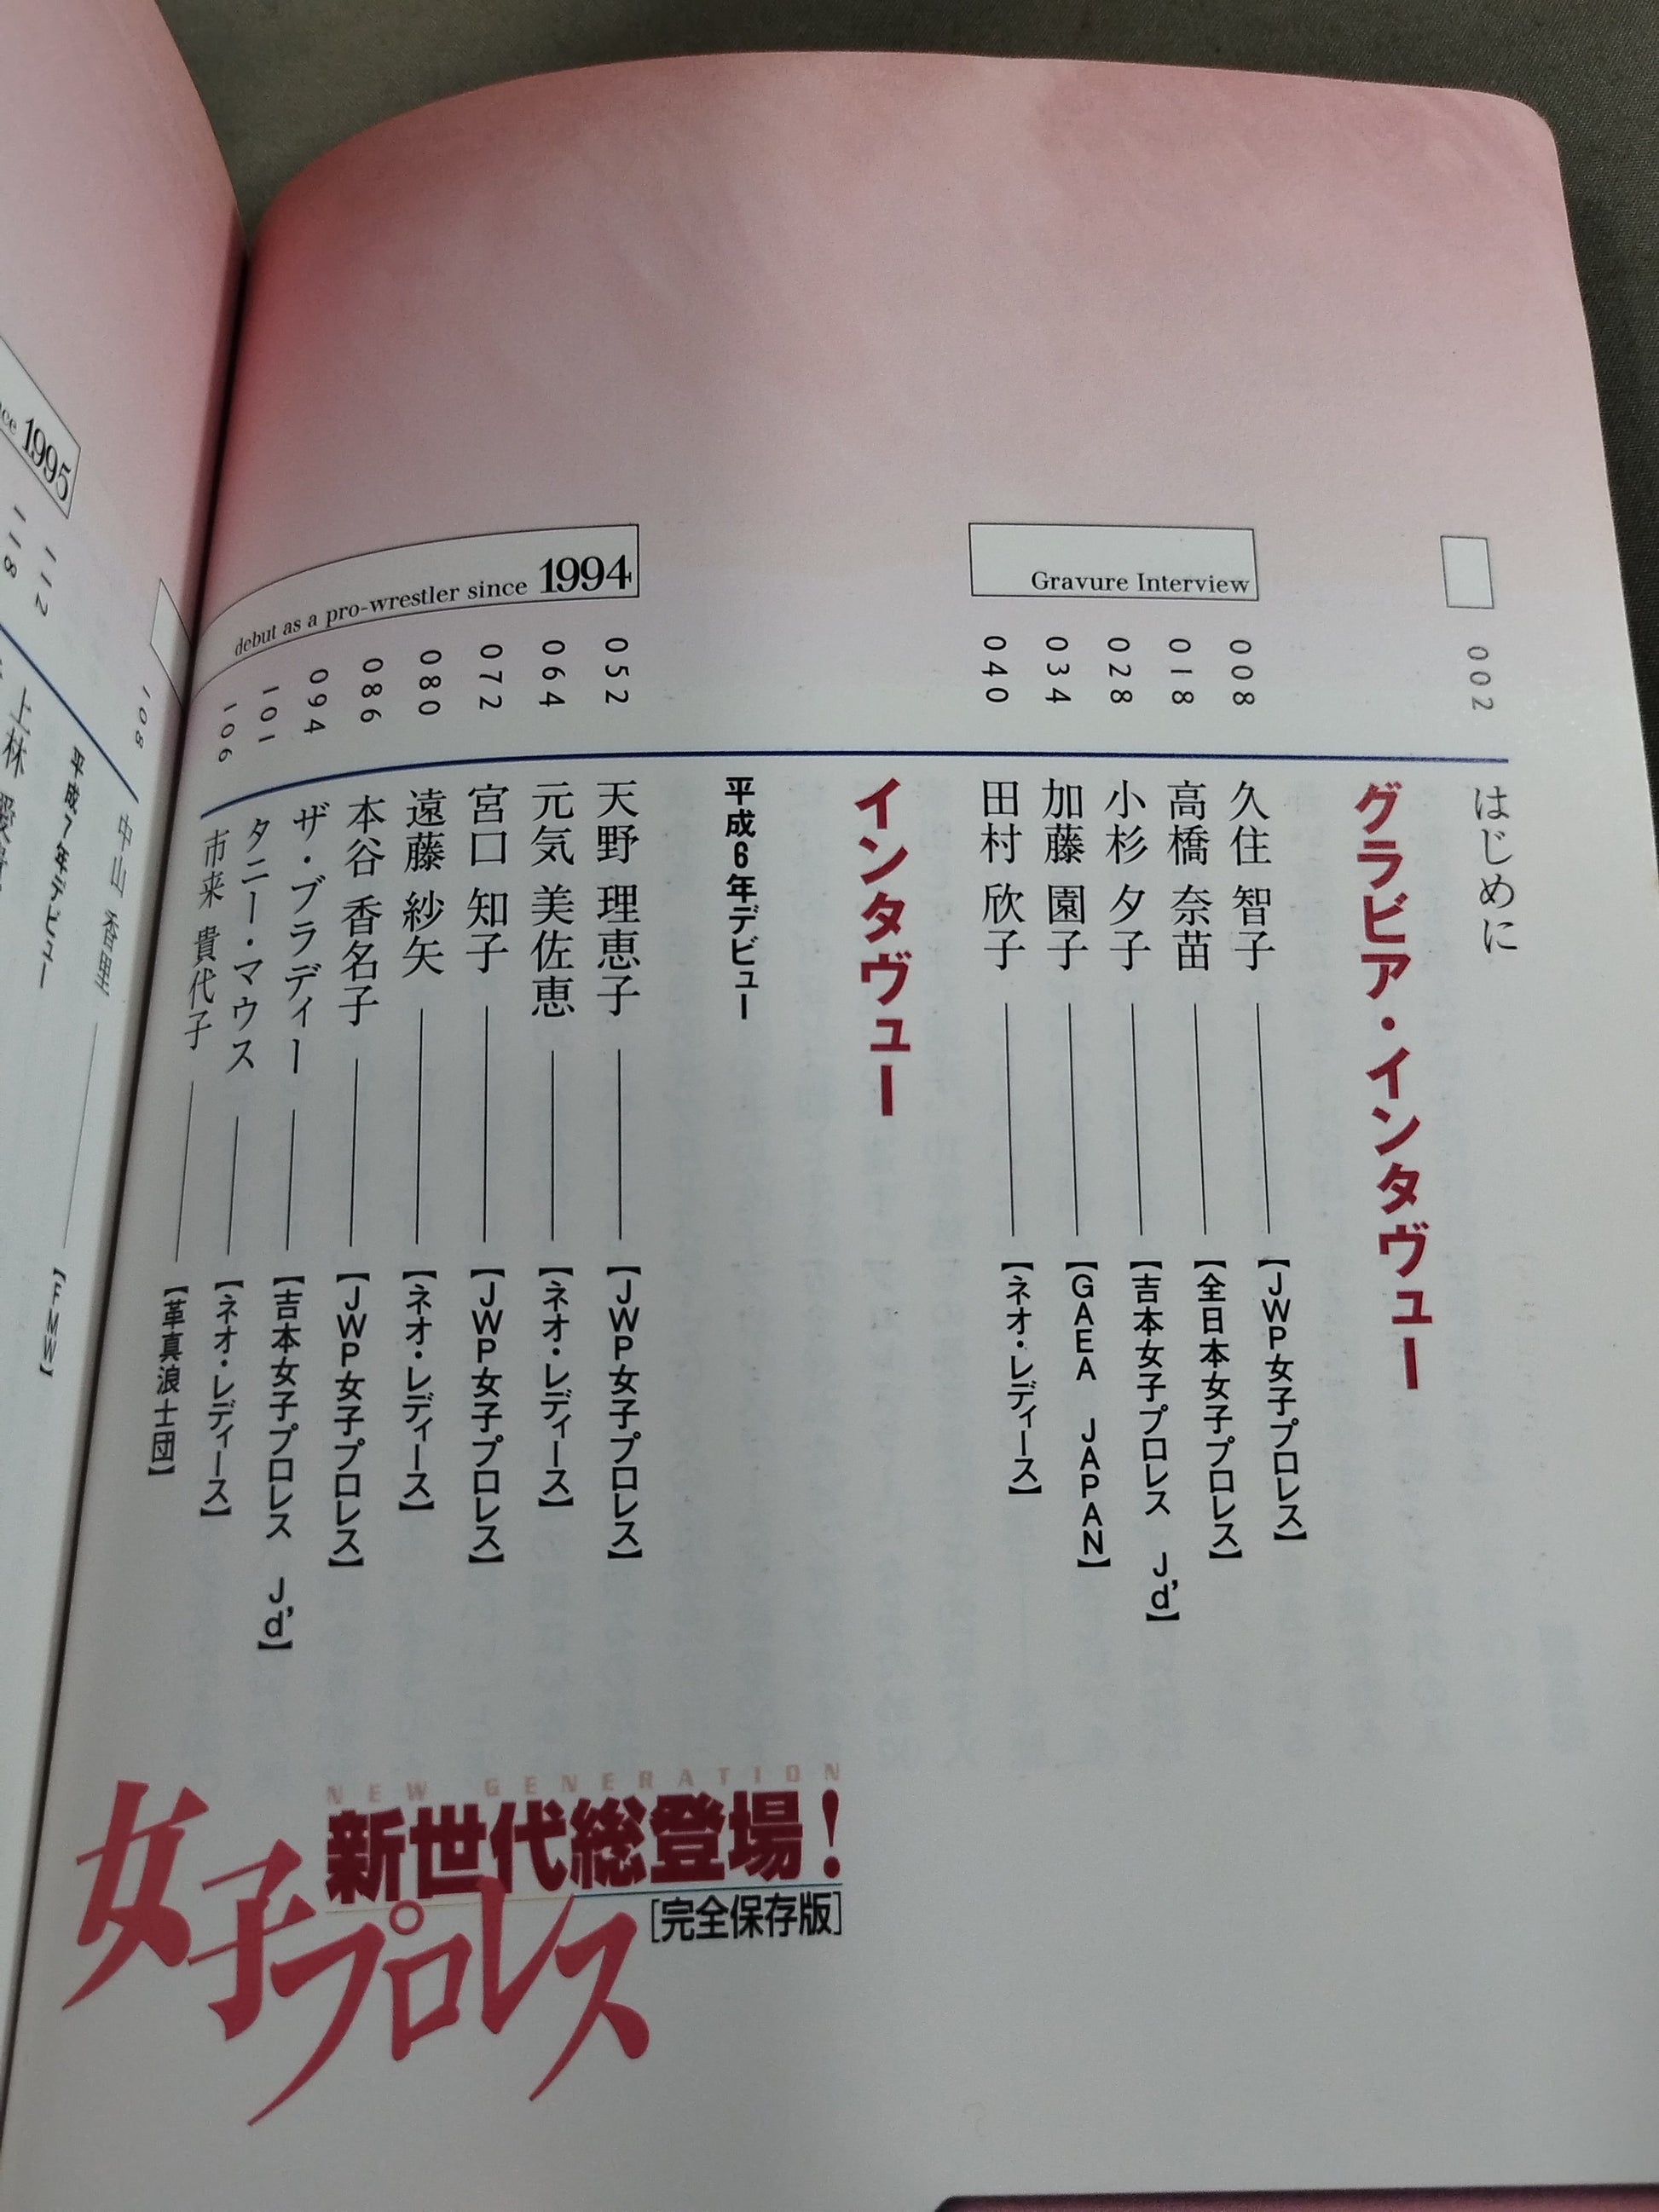 002 はじめに
グラビア・インタヴュー
Gravure Interview
008 久住 智子 【JWP女子プロレス】
018 高橋 奈苗 【全日本女子プロレス】
028 小杉 夕子 【吉本女子プロレス Jd'】
034 加藤 園子 【GAEA JAPAN】
040 田村 欣子 【ネオ・レディース】
インタヴュー
平成6年デビュー
debut as a pro-wrestler since 1994
052 天野 理恵子 【JWP女子プロレス】
064 元気 美佐恵 【ネオ・レディース】
072 宮口 知子 【JWP女子プロレス】
080 遠藤 紗矢 【ネオ・レディース】
086 本谷 香名子 【JWP女子プロレス】
094 ザ・ブラディー 【吉本女子プロレス Jd'】
101 タニー・マウス 【ネオ・レディース】
106 市来 貴代子 【革真浪士団】
NEW GENERATION
新世代総登場!
[完全保存版]
女子プロレス
108 中山 香里 【FMW】
平成7年デビュー
1995
112 上林
118